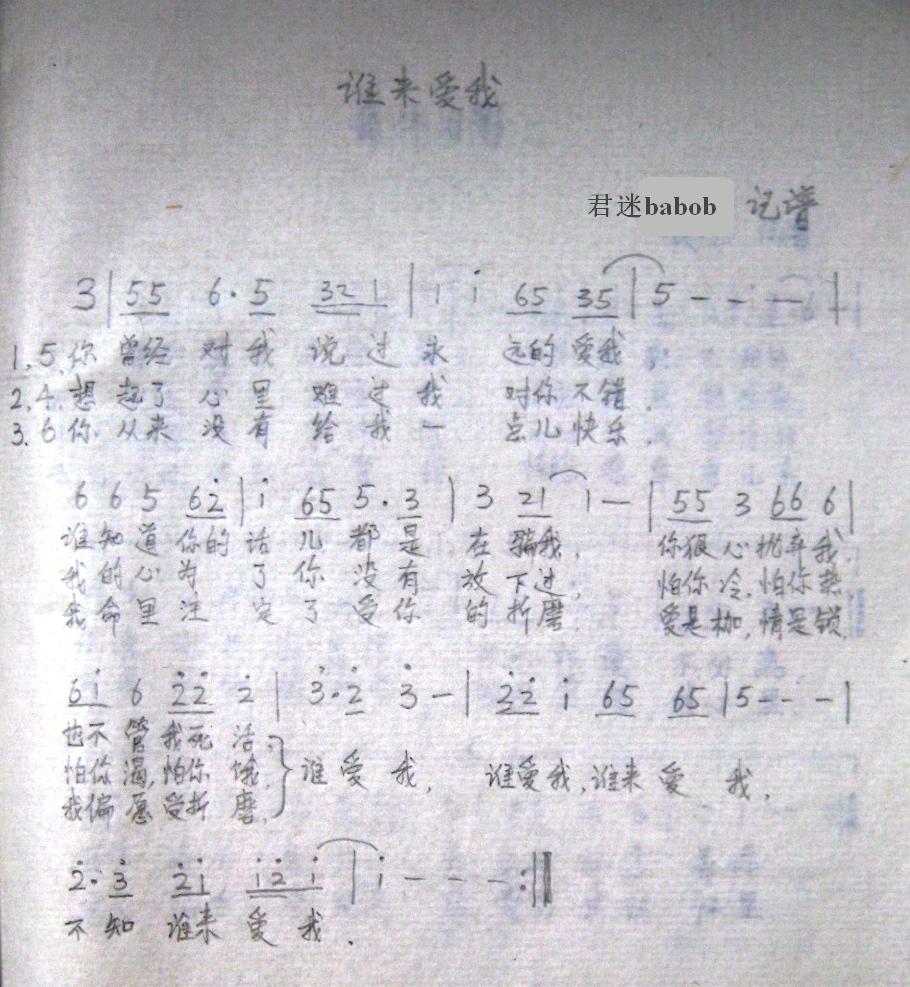 谁来爱我
君迷babob 记谱
3 | 55 6·5 321 | 1 i 65 35 | 5 - - - |
1.5.你 曾经 对我 说过永 远的爱我,
2.4.想 起了 心里 难过我 对你不错.
3.6 你 从来 没有 给我一 点儿快乐.
6 6 5 62̇ | i 65 5·3 | 3 21 1 - | 55 3 66 6 |
谁知道你的话儿都是在骗我, 你狠心抛弃我,
我的心为了你没有放下过, 怕你冷,怕你热,
我命里注定了受你的折磨. 爱是枷,情是锁,
6i 6 2̇2̇ 2̇ | 3̇·2̇ 3̇ - | 3̇2̇ i 65 65 | 5 - - - |
也不管我死活,
怕你渴,怕你饿, } 谁爱我, 谁爱我,谁来爱我,
我偏愿受折磨.
2̇·3̇ 2̇i i2̇i | i - - - :||
不知谁来爱我.